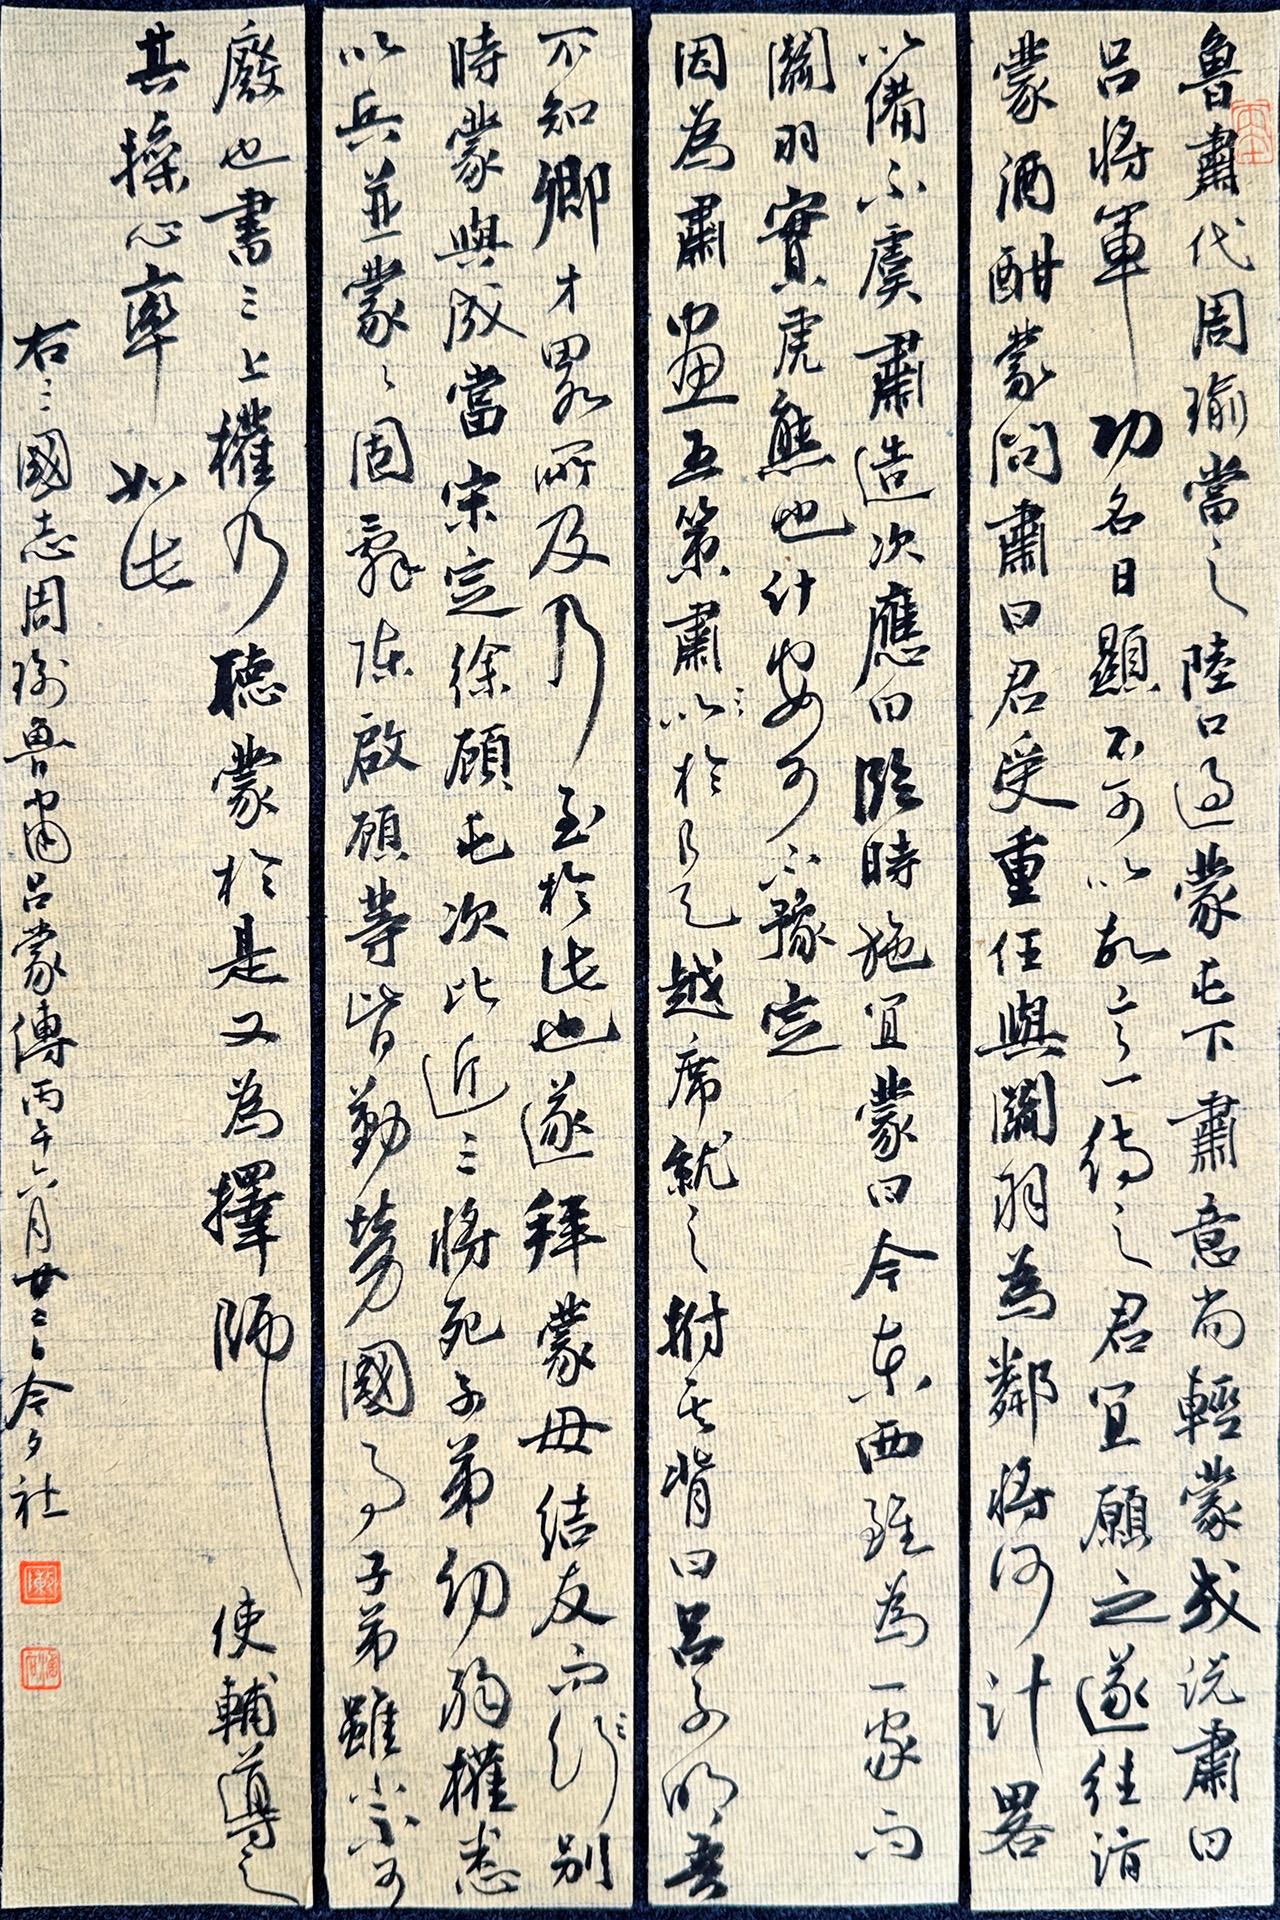 魯肅代周瑜當之陸口過蒙屯下肅意尚輕蒙或說肅曰
呂將軍功名日顯不可以故意待之君宜顧之遂往詣
蒙酒酣蒙問肅曰君受重任與關羽為鄰將何計畧
以備不虞肅造次應曰臨時施宜蒙曰今東西雖為一家而
關羽實虎熊也計安可不豫定
因為肅畫五策肅以於是越席就之拊其背曰呂子明吾
不知卿才畧所及乃至於此也遂拜蒙母結友而行別
時蒙與成當宋定徐顧屯次比近三將死子弟幼弱權悉
以兵並蒙〻固辭陳啟顧等皆勤勞國事子弟雖小不可
廢也書三上權乃聽蒙於是又為擇師使輔導之
其操心率如此
右三國志周瑜魯肅呂蒙傳丙午六月廿二日今夕社